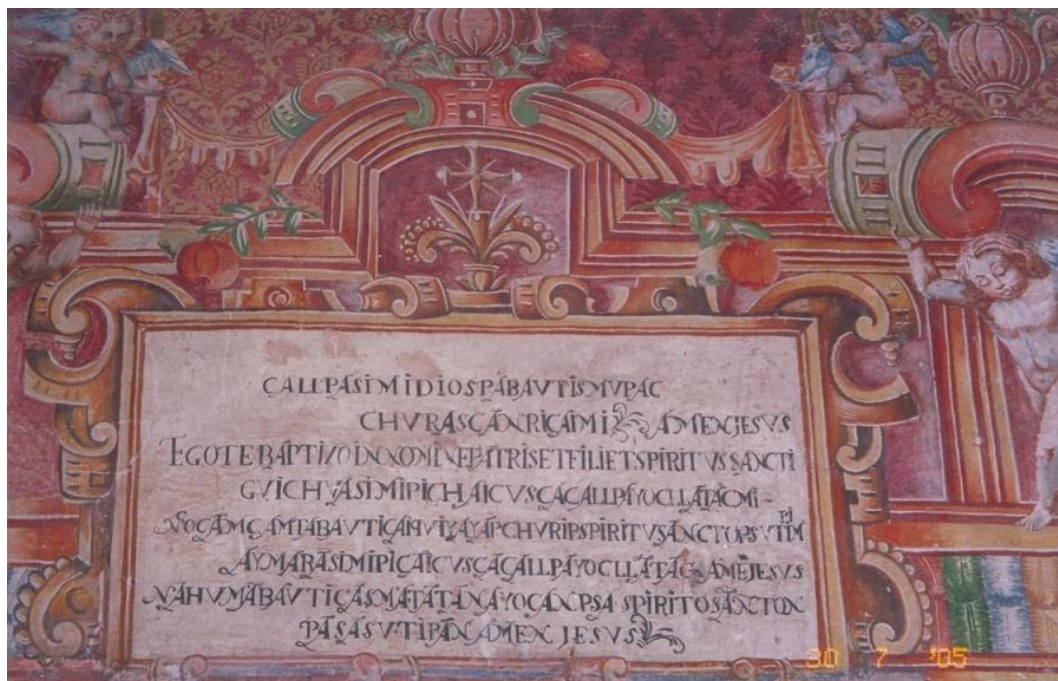 ÇALLPASIMIDIOSPABAVTISMVPAC
CHVRASCĀNRIÇAIMI AMENJESVS
EGOTEBAPTIZOINNOMINEPATRISETFILIETSPIRITVSSANCTI
GVICHVASIMIPICHAICVSCAÇALLPAYOCLLATACMI-
ÑOCAMÇAMTABAVTIÇAIQVIYAYAPCHVRIPSPIRITVSANCTOPSVTIMPI
AYMARASIMIPIÇAICVSCAÇALLPAYOCLLATAG AMĒJESVS
NAHVMABAVTIÇASMATATANAYOCANPSA SPIRITOSANCTON
PASASVTIPAN AMEN JESVS
30 7 '05